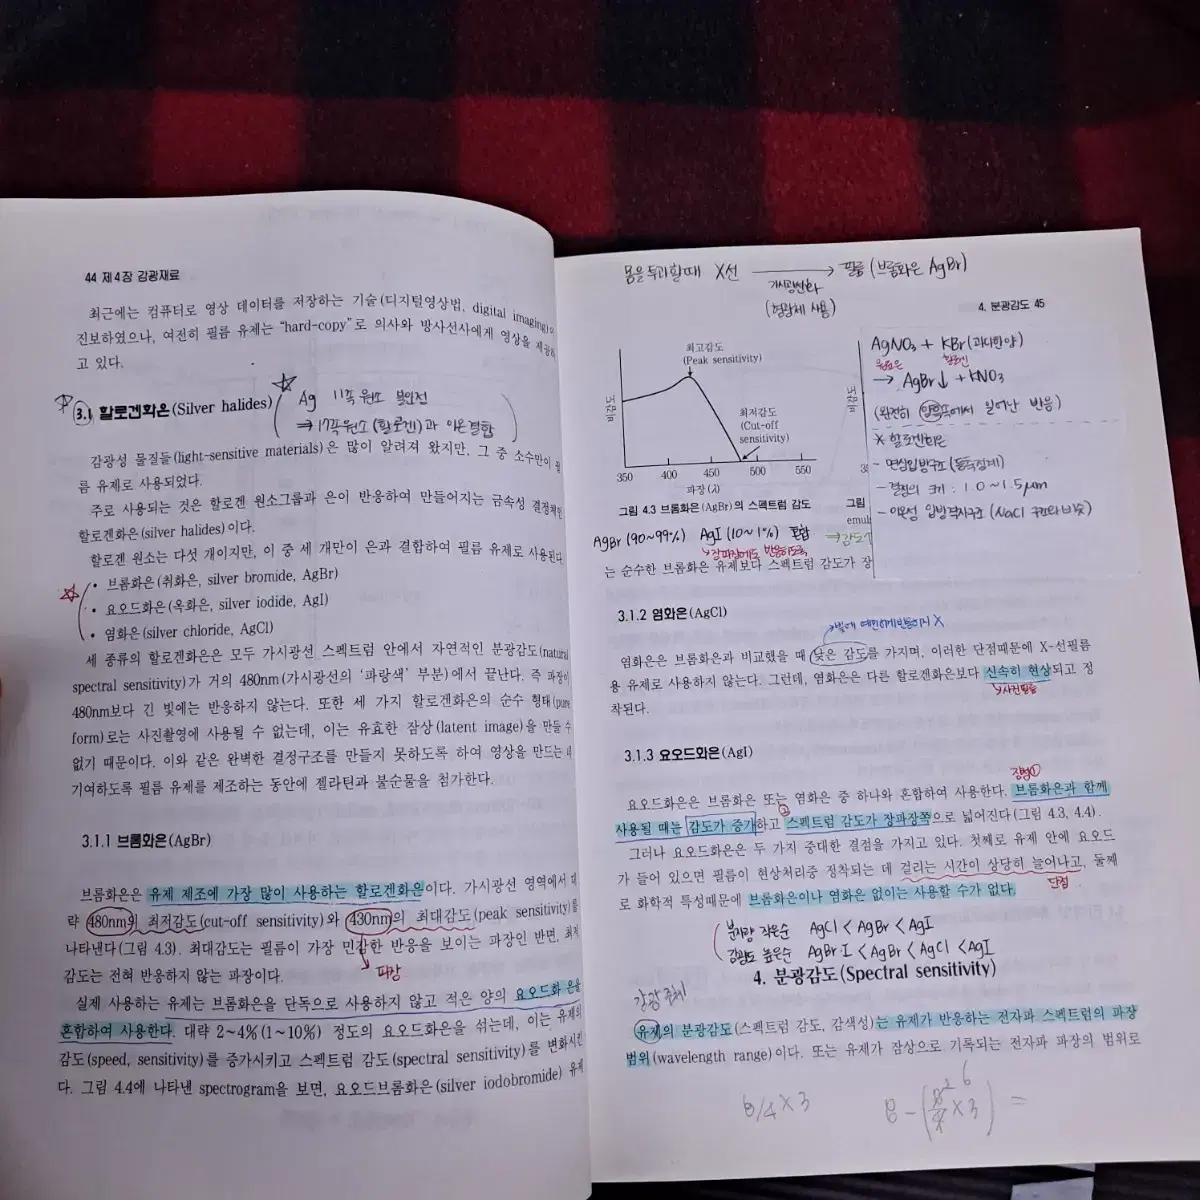 44 제4장 감광재료
최근에는 컴퓨터로 영상 데이터를 저장하는 기술(디지털영상법, digital imaging)이
진보하였으나, 여전히 필름 유제는 “hard-copy”로 의사와 방사선사에게 영상을 제공하
고 있다.
3.1 할로겐화은(Silver halides)
Ag 11족 원소 불안전
⇒ 17족 원소(할로겐)과 이온결합
감광성 물질들(light-sensitive materials)은 많이 알려져 왔지만, 그 중 소수만이 필
름 유제로 사용되었다.
주로 사용되는 것은 할로겐 원소그룹과 은이 반응하여 만들어지는 금속성 결정체인
할로겐화은(silver halides)이다.
할로겐 원소는 다섯 개이지만, 이 중 세 개만이 은과 결합하여 필름 유제로 사용된다.
• 브롬화은(취화은, silver bromide, AgBr)
• 요오드화은(옥화은, silver iodide, AgI)
• 염화은(silver chloride, AgCl)
세 종류의 할로겐화은은 모두 가시광선 스펙트럼 안에서 자연적인 분광감도(natural
spectral sensitivity)가 거의 480nm(가시광선의 ‘파랑색’ 부분)에서 끝난다. 즉 파장이
480nm보다 긴 빛에는 반응하지 않는다. 또한 세 가지 할로겐화은의 순수 형태(pure
form)로는 사진촬영에 사용될 수 없는데, 이는 유효한 잠상(latent image)을 만들 수
없기 때문이다. 이와 같은 완벽한 결정구조를 만들지 못하도록 하여 영상을 만드는데
기여하도록 필름 유제를 제조하는 동안에 젤라틴과 불순물을 첨가한다.
3.1.1 브롬화은(AgBr)
브롬화은은 유제 제조에 가장 많이 사용하는 할로겐화은이다. 가시광선 영역에서 대
략 480nm의 최저감도(cut-off sensitivity)와 430nm의 최대감도(peak sensitivity)를
나타낸다(그림 4.3). 최대감도는 필름이 가장 민감한 반응을 보이는 파장인 반면, 최저
감도는 전혀 반응하지 않는 파장이다.
파장
실제 사용하는 유제는 브롬화은을 단독으로 사용하지 않고 적은 양의 요오드화 은을
혼합하여 사용한다. 대략 2~4%(1~10%) 정도의 요오드화은을 섞는데, 이는 유제의
감도(speed, sensitivity)를 증가시키고 스펙트럼 감도(spectral sensitivity)를 변화시킨
다. 그림 4.4에 나타낸 spectrogram을 보면, 요오드브롬화은(silver iodobromide) 유제
몸을 투과할때 X선 → 필름 (브롬화은 AgBr)
가시광변화
(형광체 사용)
4. 분광감도 45
최고감도
(Peak sensitivity)
최저감도
(Cut-off
sensitivity)
비감도
350 400 450 500 550
파장(λ)
그림 4.3 브롬화은(AgBr)의 스펙트럼 감도
그림
AgNO₃ + KBr(과다한양)
할로겐
→ AgBr↓ + KNO₃
(완전히 암흑속에서 일어난 반응)
※ 할로겐화은
- 면심입방구조(등축정계)
- 결정의 크기 : 1.0~1.5μm
- 이온성 입방격자구조 (NaCl 구조와 비슷)
AgBr (90~99%) AgI (10~1%) 혼합
⇒감도
장파장에도 반응하도록
는 순수한 브롬화은 유제보다 스펙트럼 감도가 장
3.1.2 염화은(AgCl)
빛에 예민하게 반응하지 X
염화은은 브롬화은과 비교했을 때 낮은 감도를 가지며, 이러한 단점때문에 X-선필름
용 유제로 사용하지 않는다. 그런데, 염화은은 다른 할로겐화은보다 신속히 현상되고 정
착된다.
사진필름
3.1.3 요오드화은(AgI)
장점①
요오드화은은 브롬화은 또는 염화은 중 하나와 혼합하여 사용한다. 브롬화은과 함께
사용될 때는 감도가 증가하고 스펙트럼 감도가 장파장쪽으로 넓어진다(그림 4.3, 4.4).
그러나 요오드화은은 두 가지 중대한 결점을 가지고 있다. 첫째로 유제 안에 요오드
가 들어 있으면 필름이 현상처리중 정착되는 데 걸리는 시간이 상당히 늘어나고, 둘째
로 화학적 특성때문에 브롬화은이나 염화은 없이는 사용할 수가 없다.
단점
분자량 작은순 AgCl < AgBr < AgI
감광도 높은순 AgBrI < AgBr < AgCl < AgI
4. 분광감도(Spectral sensitivity)
감광 주체
유제의 분광감도(스펙트럼 감도, 감색성)는 유제가 반응하는 전자파 스펙트럼의 파장
범위(wavelength range)이다. 또는 유제가 잠상으로 기록되는 전자파 파장의 범위로
6/4 × 3